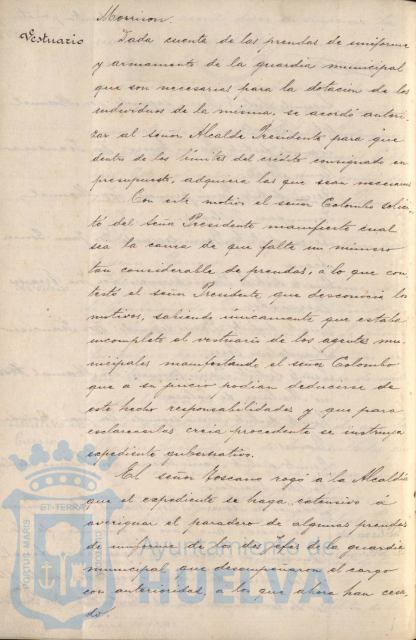 Morrison.
Vestuario
Dada cuenta de las prendas de uniforme
y armamento de la guardia municipal
que son necesarias para la dotación de los
individuos de la misma, se acordó autori-
zar al señor Alcalde Presidente para que
dentro de los límites del crédito consignado en
presupuesto, adquiera las que sean necesarias
Con este motivo el señor Colombo solici-
tó del Señor Presidente manifieste cual
sea la causa de que falte un número
tan considerable de prendas, á lo que con-
testó el señor Presidente, que desconocía los
motivos, sabiendo únicamente que estaba
incompleto el vestuario de los agentes mu-
nicipales manifestando el señor Colombo
que á su juicio podian deducirse de
este hecho responsabilidades y que para
esclarecerlas creia procedente se instruya
expediente gubernativo.
El señor Toscano rogó á la Alcaldia
que el expediente se haga extensivo á
averiguar el paradero de algunas prendas
de uniforme de los de la guardia
municipal, que desempeñaron el cargo
con anterioridad á los que ahora han cesa-
do.
PORTUS MARIS
ET TERRAE
CUSTODIA
Ayuntamiento de
HUELVA